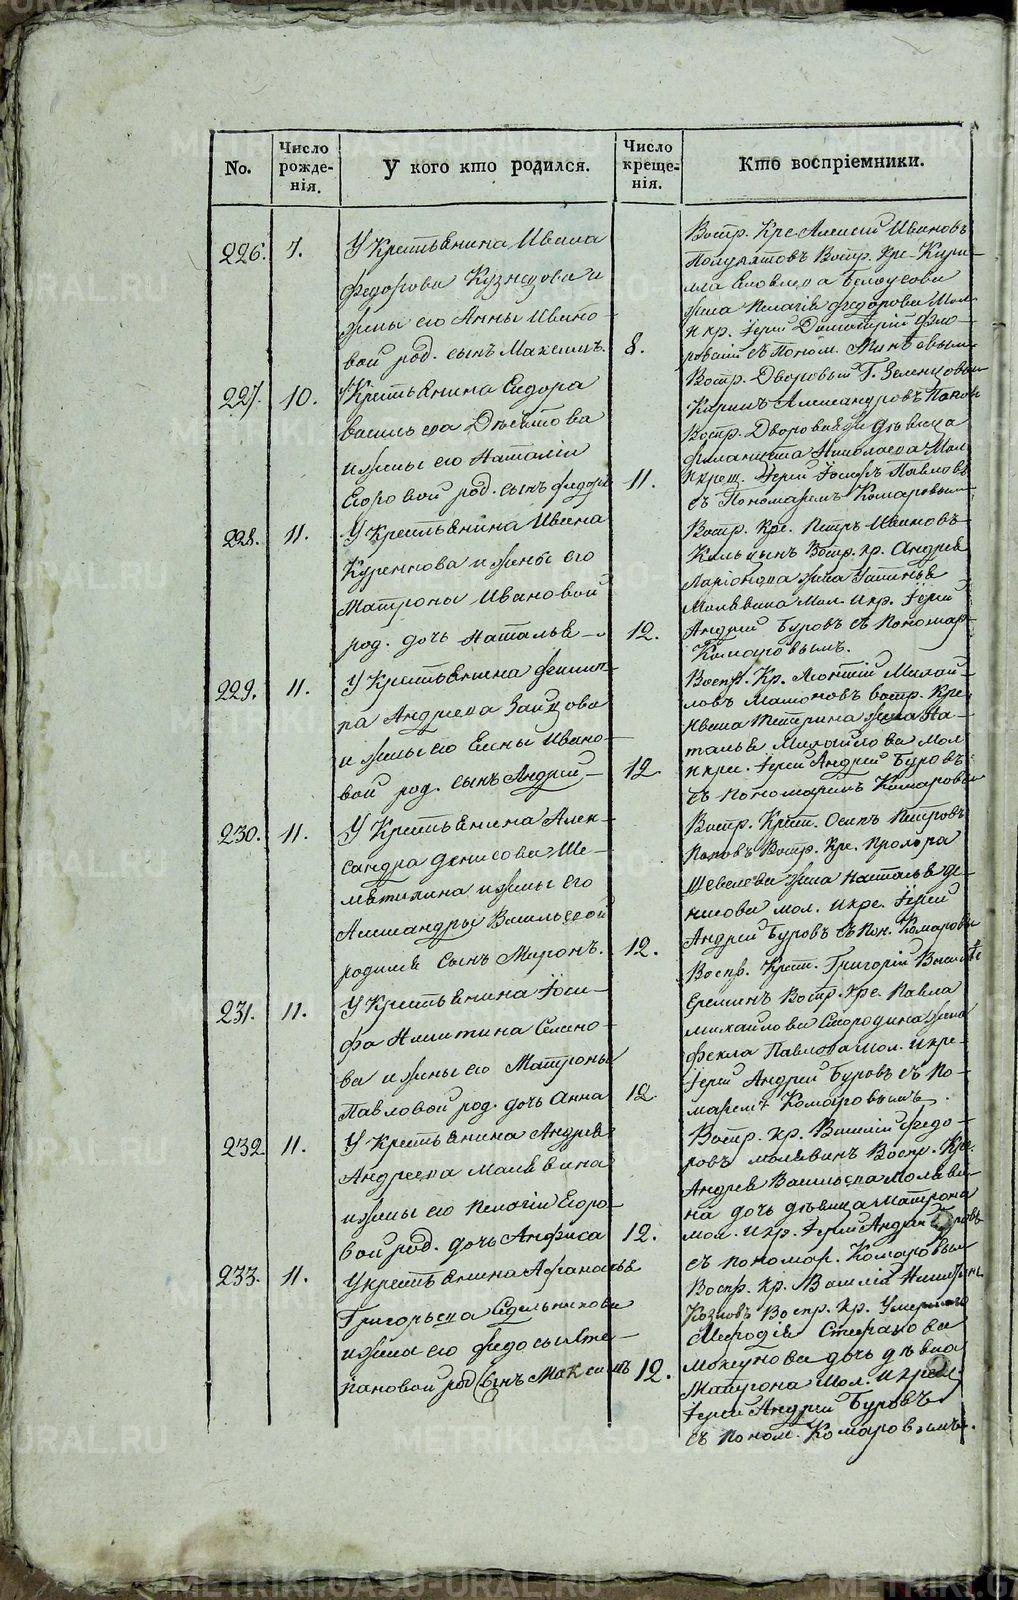 No.
Число рожде-нія.
У кого кто родился.
Число креще-нія.
Кто воспріемники.
226. 7.
У Крестьянина Ивана
Федорова Кузнецова и
жены его Анны Ивано-
вой род. сынъ Максимъ.
8.
Воспр. Кре Алексей Ивановъ
Воспр. Кре Кири-
ла Яковлева Белоусова
жена Пелагія Федорова Мол.
и кр. Іерей Димитрій Фло-
ровскій съ Поном.
227. 10.
У Крестьянина Егора
Васильева
и жены его Наталіи
Егоровой род. сынъ Федоръ
11.
Воспр. Дворовый Г. Зеленцовы
Александровъ Попо
Воспр. Дворовая девица
Николаева Мол.
и крещ. Іерей Іосифъ Павловъ
съ Пономаремъ Комаровым
228. 11.
У Крестьянина Ивана
Куренкова и жены его
Матроны Ивановой
род. дочь Наталья
12.
Воспр. Кре. Петръ Ивановъ
Воспр. кр. Андрея
Ларіонова жена Татьяна
Молявина Мол. и кр. Іерей
Андрей Буровъ съ Пономар.
Комаровымъ.
229. 11.
У Крестьянина Филип-
па Андреева Зайцова
и жены его Елены Ивано-
вой род. сынъ Андрей
12
Воспр. Кр. Леонтій Михай-
ловъ Мамоновъ воспр. Кре
Ивана Тетерина жена На-
талья Михайлова мол
и кре. Іерей Андрей Буровъ
съ пономаремъ Комаровы
230. 11.
У Крестьянина Алек-
сандра Денисова Ше-
метихина и жены его
Александры Васильевой
родился сынъ Миронъ.
12.
Воспр. Крест. Осипъ Петровъ
Поповъ Воспр. Кре. Прохора
Шевелева жена Наталья Де-
нисова мол. и кре. Іерей
Андрей Буровъ съ Пон. Комаровы
231. 11.
У Крестьянина Іоси-
фа Никитина Семено-
ва и жены его Матроны
Павловой род. дочь Анна
12
Воспр. Крест. Григорій Василье
Ереминъ Воспр. Кре. Павла
Михайлова Смородина жена
Фекла Павлова мол. и кре-
Іерей Андрей Буровъ съ По-
маремъ Комаровымъ.
232 11.
У Крестьянина Андрея
Андреева Малявина
и жены его Пелагіи Егоро-
вой род. дочь Анфиса
12.
Воспр. Кр. Василій Федо-
ровъ Молявинъ Воспр. Кре.
Андрея Васильева Моляви-
на дочь девица Матрона
мол. и кр. Іерей Андрей Буровъ
съ пономар. Комаровым
233. 11.
У крестьянина Афанасья
Григорьева Седельникова
и жены его Федосьи Сте-
пановой род. сынъ Максимъ
12.
Воспр. кр. Василій Никитинъ
Козловъ Воспр. кр. Умершаго
Мефодія Стефанова
дочь девица
Матрона Мол. и крест
Іерей Андрей Буровъ
съ поном. Комаровымъ.
METRIKI.GASU-URAL.RU